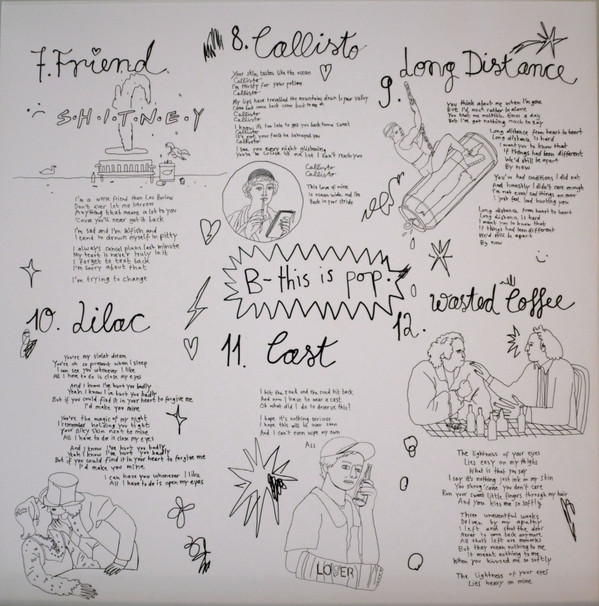 7. Friend
S·H·I·T·N·E·Y
I'm a worse friend than Lex Barker
Don't ever let me borrow
Anything that means a lot to you
'Cause you'll never get it back
I'm sad and I'm selfish and
I tend to drown myself in pity
I always cancel plans last minute
My heart is never truly in it
I forget to text back
I'm sorry about that
I'm trying to change
8. Callisto
Your skin tastes like the ocean
Callisto
I'm thirsty for your potion
Callisto
My lips have travelled the mountains down to your valley
Come back come back come back to me
Callisto
I know it's too late to get you back home sweet
Callisto
It's not your fault he betrayed you
Callisto
I see you every night glistening
You're so close to me but I can't reach you
Callisto
Callisto
This love of mine
is ocean wide and I'm
back in your stride
9. Long Distance
You think about me when I'm gone
But I'd most rather be alone
You text me multiple times a day
But I've got nothing much to say
Long distance from heart to heart
Long distance is hard
I want you to know that
If things had been different
We'd still be apart
By now
You've had conditions I did not
And honestly I didn't care enough
I'm not even sad things are over
I just feel bad hurting you
Long distance from heart to heart
Long distance is hard
I want you to know that
If things had been different
We'd still be apart
By now
B-this is pop.
10. Lilac
You're my violet dream
You're oh so present when I sleep
I can see you whenever I like
All I have to do is close my eyes
And I know I've hurt you badly
Yeah I know I've hurt you badly
But if you could find it in your heart to forgive me
I'd make you mine
You're the magic of my night
I remember holding you tight
Your silky skin next to mine
All I have to do is close my eyes
And I know I've hurt you badly
Yeah I know I've hurt you badly
But if you could find it in your heart to forgive me
I'd make you mine
I can have you whenever I like
All I have to do is open my eyes
11. Cast
I hit the road and the road hit back
And now I have to wear a cast
Oh what did I do to deserve this?
I hope it's nothing serious
I hope this will be over soon
And I can't even wipe my own
Ass
LOVER
12. Wasted Coffee
The lightness of your eyes
Lies easy on my thighs
What is that you say
I say it's nothing just ink on my skin
You shrug 'cause you don't care
Run your sweet little fingers through my hair
And you kiss me so softly
Three uneventful weeks
Driven by my apathy
I left and shut the door
Never to come back anymore
All that's left are memories
But they mean nothing to me
It meant nothing to me
When you kissed me so softly
The lightness of your eyes
Lies heavy on mine